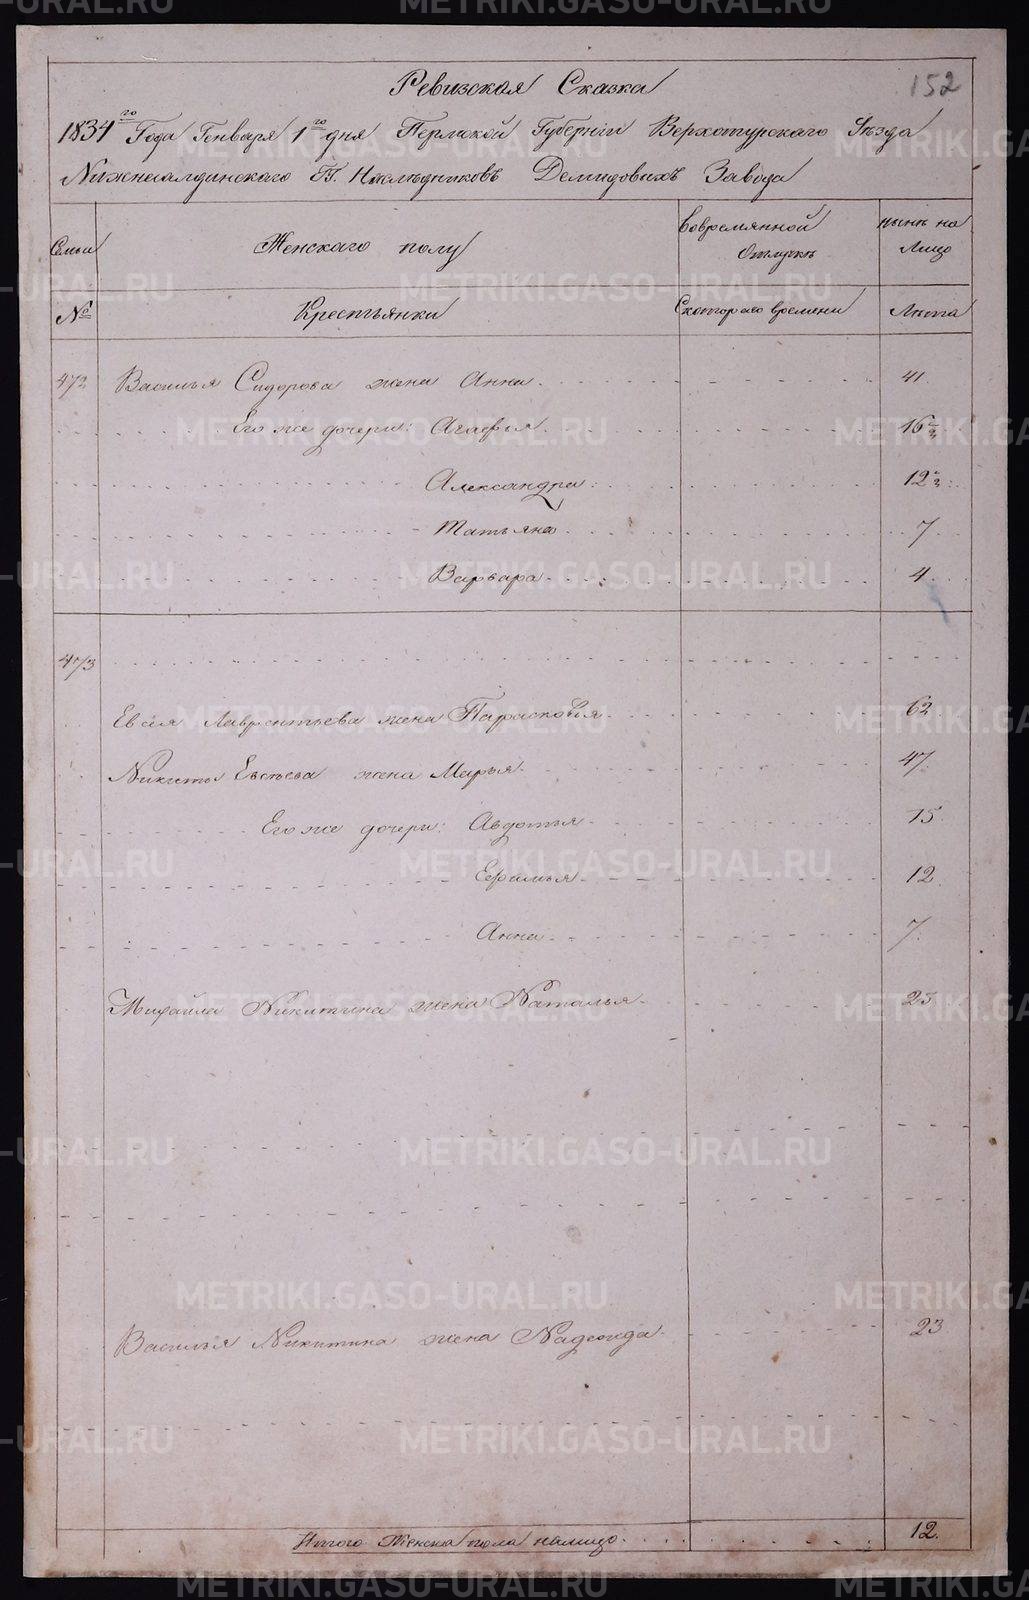 152
Ревизская Сказка
1834го Года Генваря 1го дня Пермской Губернiи Верхотурскаго Уѣзда
Нижнесалдинскаго ГГ. Наслѣдниковъ Демидовыхъ Завода
Семьи Женскаго полу Вовремянной Отлучкѣ нынѣ на Лицо
№ Крестьянки Скотораго времени Лѣта
472 Василья Сидорова жена Анна 41
Его же дочери: Агафья 16 1/2
Александра 12 1/2
Татьяна 7
Варвара 4
473
Евсѣя Лаврентьева жена Парасковья 62
Никиты Евсѣева жена Марья 47
Его же дочери: Авдотья 15
Ефимья 12
Анна 7
Михайла Никитина жена Наталья 25
Василья Никитина жена Надежда 23
Итого Женска пола налицо 12
METRIKI.GASO-URAL.RU